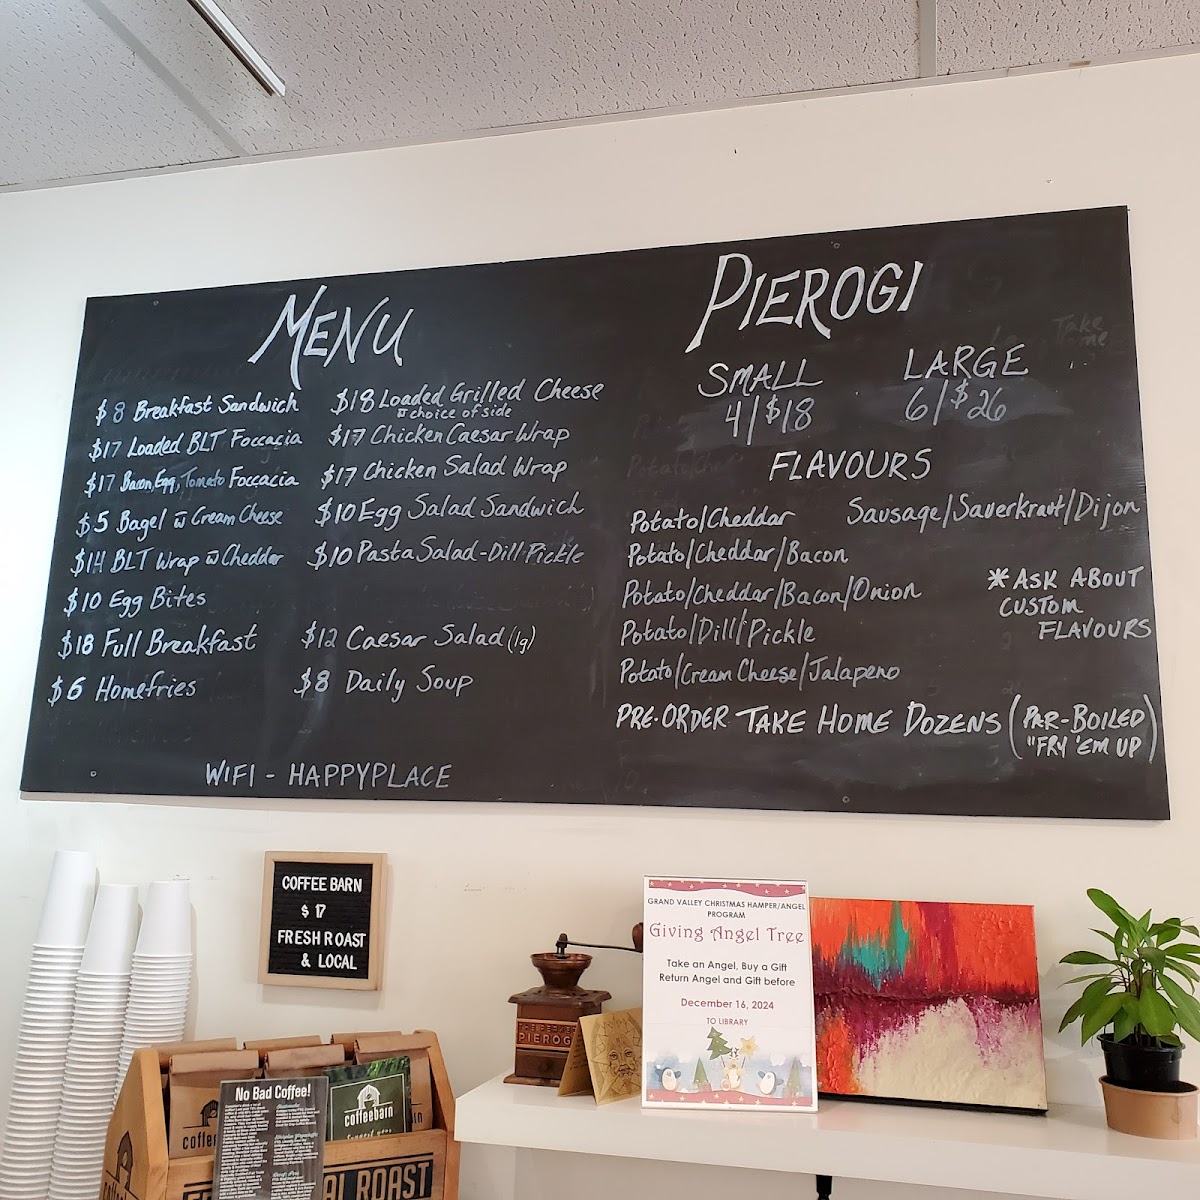 MENU
$8 Breakfast Sandwich
$17 Loaded BLT Foccacia
$17 Bacon, Egg, Tomato Foccacia
$5 Bagel w̄ Cream Cheese
$14 BLT Wrap w̄ Chedder
$10 Egg Bites
$18 Full Breakfast
$6 Homefries
$18 Loaded Grilled Cheese
w̄ choice of side
$17 Chicken Caesar Wrap
$17 Chicken Salad Wrap
$10 Egg Salad Sandwich
$10 Pasta Salad - Dill Pickle
$12 Caesar Salad (lg)
$8 Daily Soup
WIFI - HAPPYPLACE
PIEROGI
Take
Home
SMALL
4/$18
LARGE
6/$26
FLAVOURS
Potato/Cheddar
Potato/Cheddar/Bacon
Potato/Cheddar/Bacon/Onion
Potato/Dill/Pickle
Potato/Cream Cheese/Jalapeno
Sausage/Sauerkraut/Dijon
* ASK ABOUT
CUSTOM
FLAVOURS
PRE-ORDER TAKE HOME DOZENS (PAR-BOILED
"FRY 'EM UP)
COFFEE BARN
$ 17
FRESH ROAST
& LOCAL
GRAND VALLEY CHRISTMAS HAMPER/ANGEL
PROGRAM
Giving Angel Tree
Take an Angel, Buy a Gift
Return Angel and Gift before
December 16, 2024
TO LIBRARY
PIEROGI
No Bad Coffee!
coffeebarn
ROAST